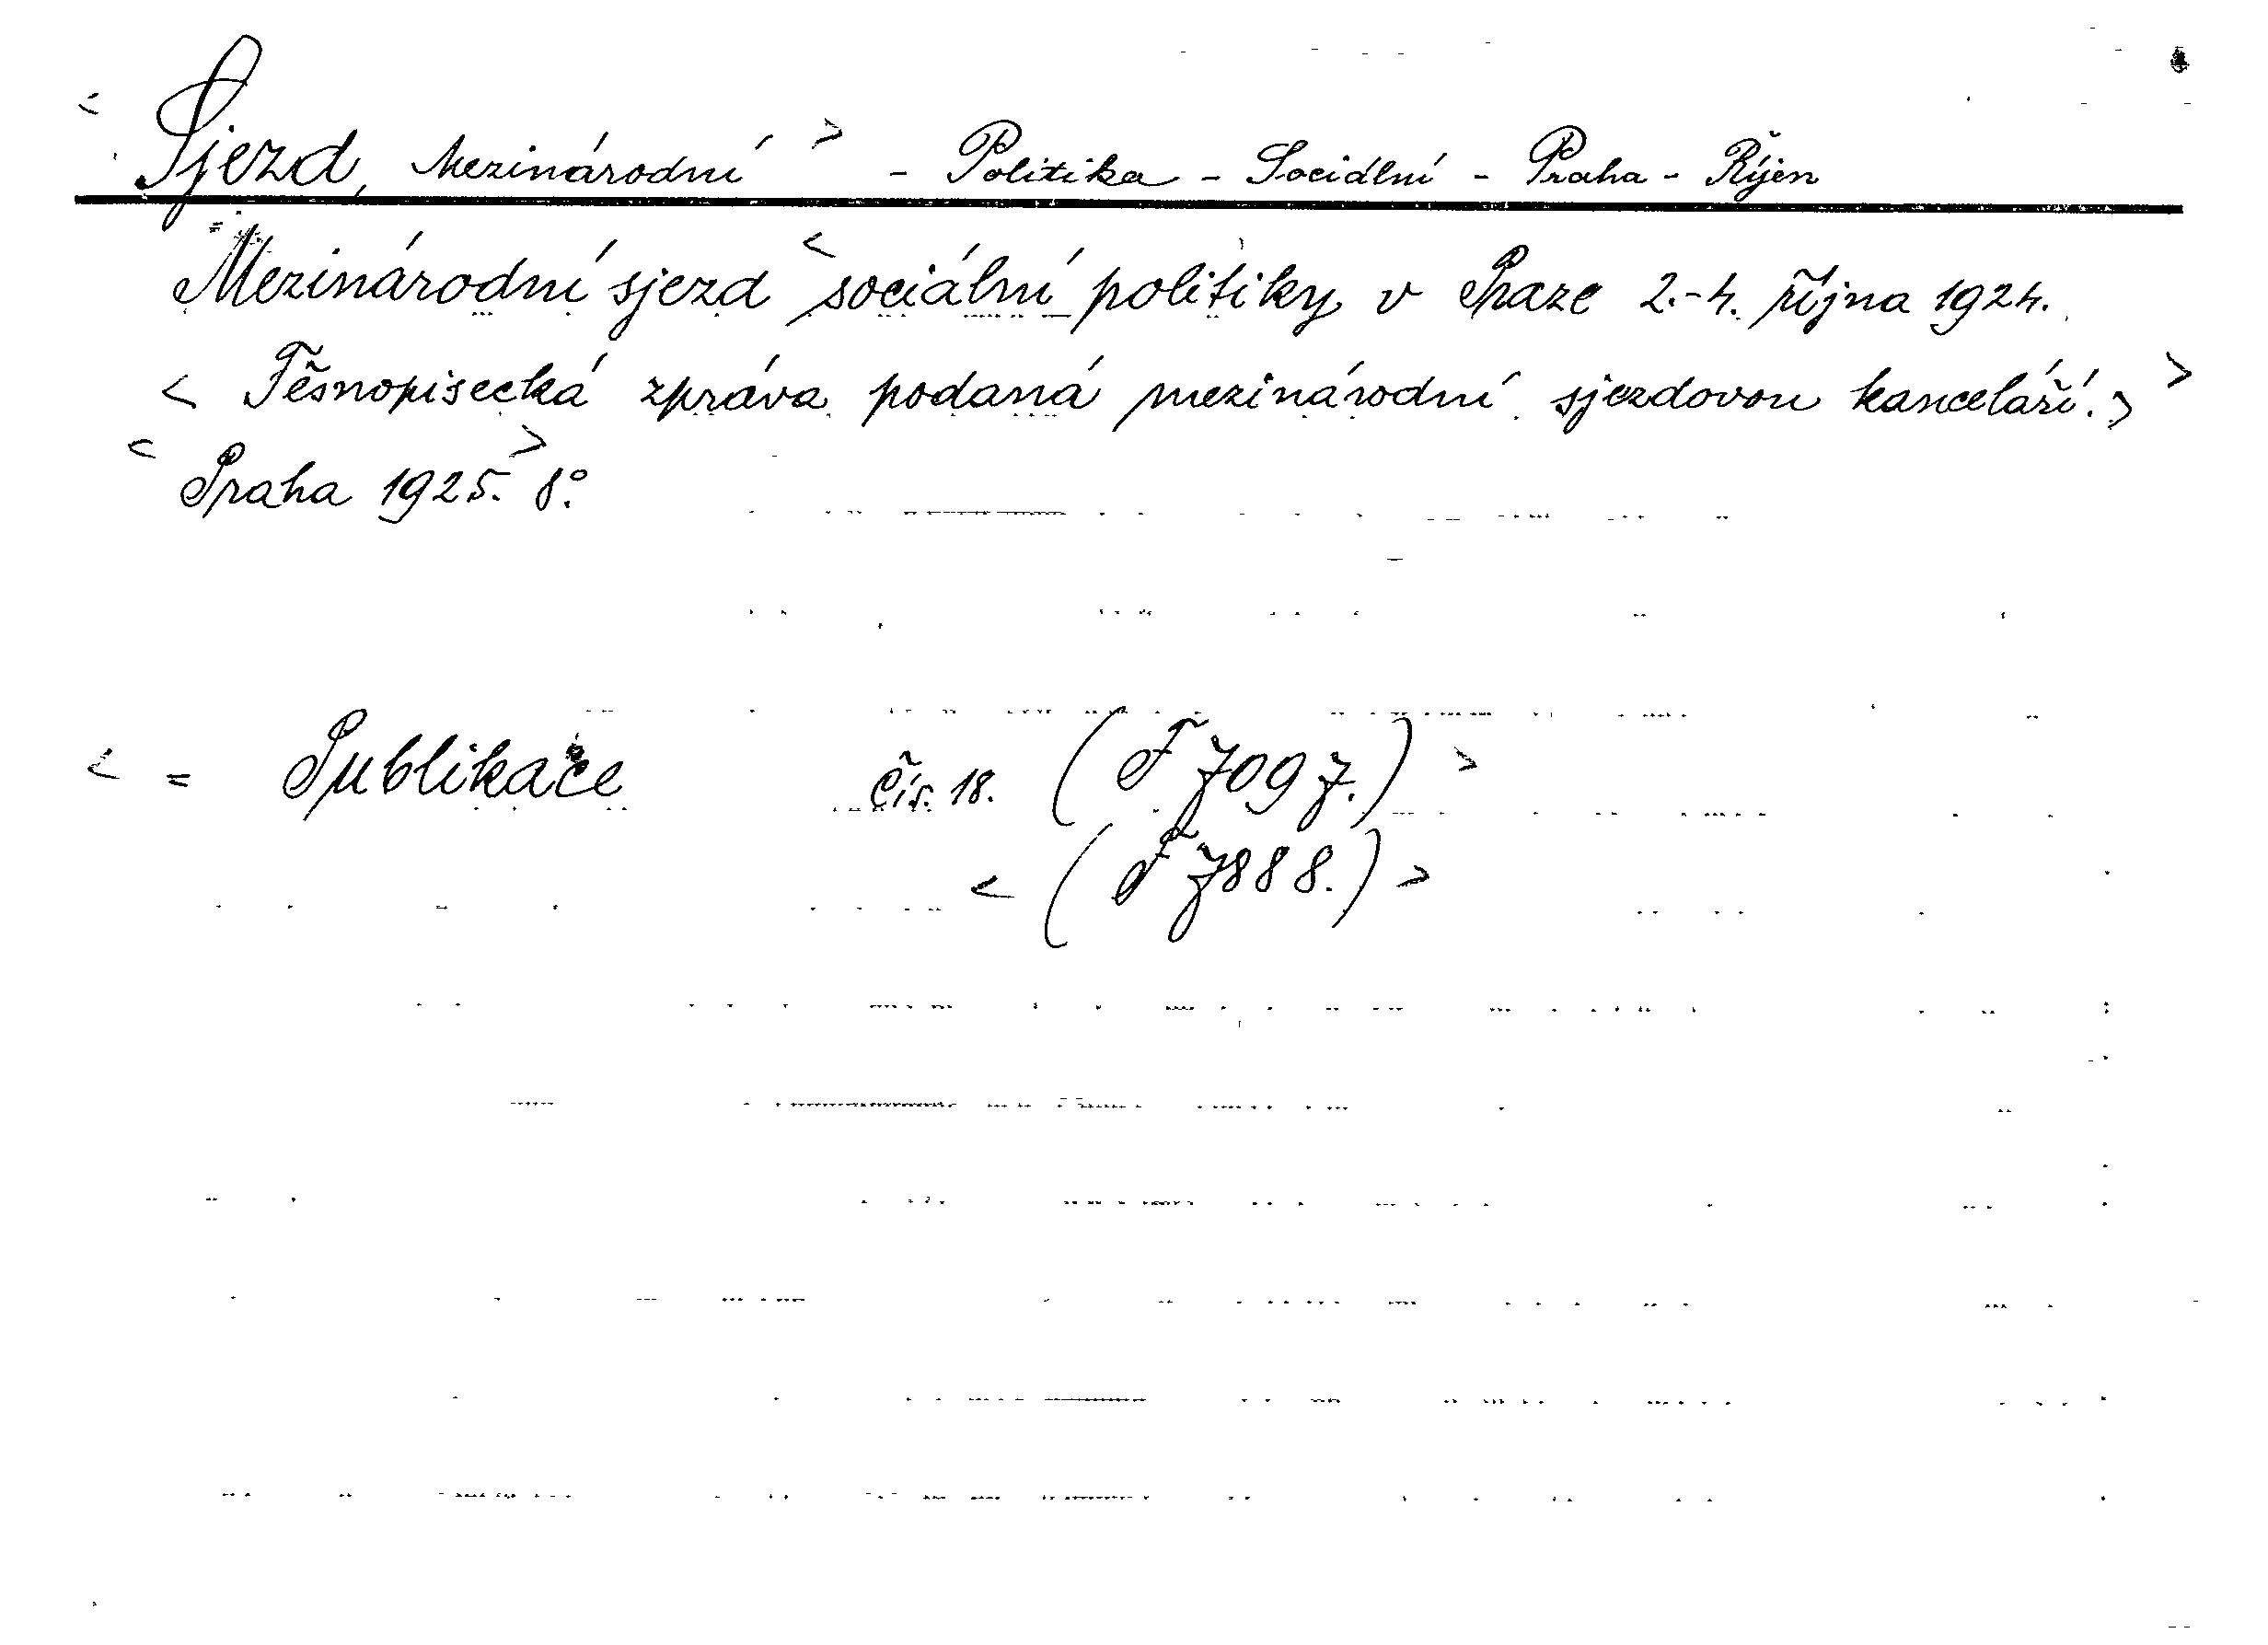 < Sjezd, Mezinárodní > - Politika - Sociální - Praha - Říjen
Mezinárodní sjezd < sociální politiky v Praze 2.-4. října 1924.
< Těsnopisecká zpráva podaná mezinárodní sjezdovou kanceláří. > >
< Praha 1925. > 8°.
< = Publikace čís. 18. (F 7097.) >
< (F 7888.) >